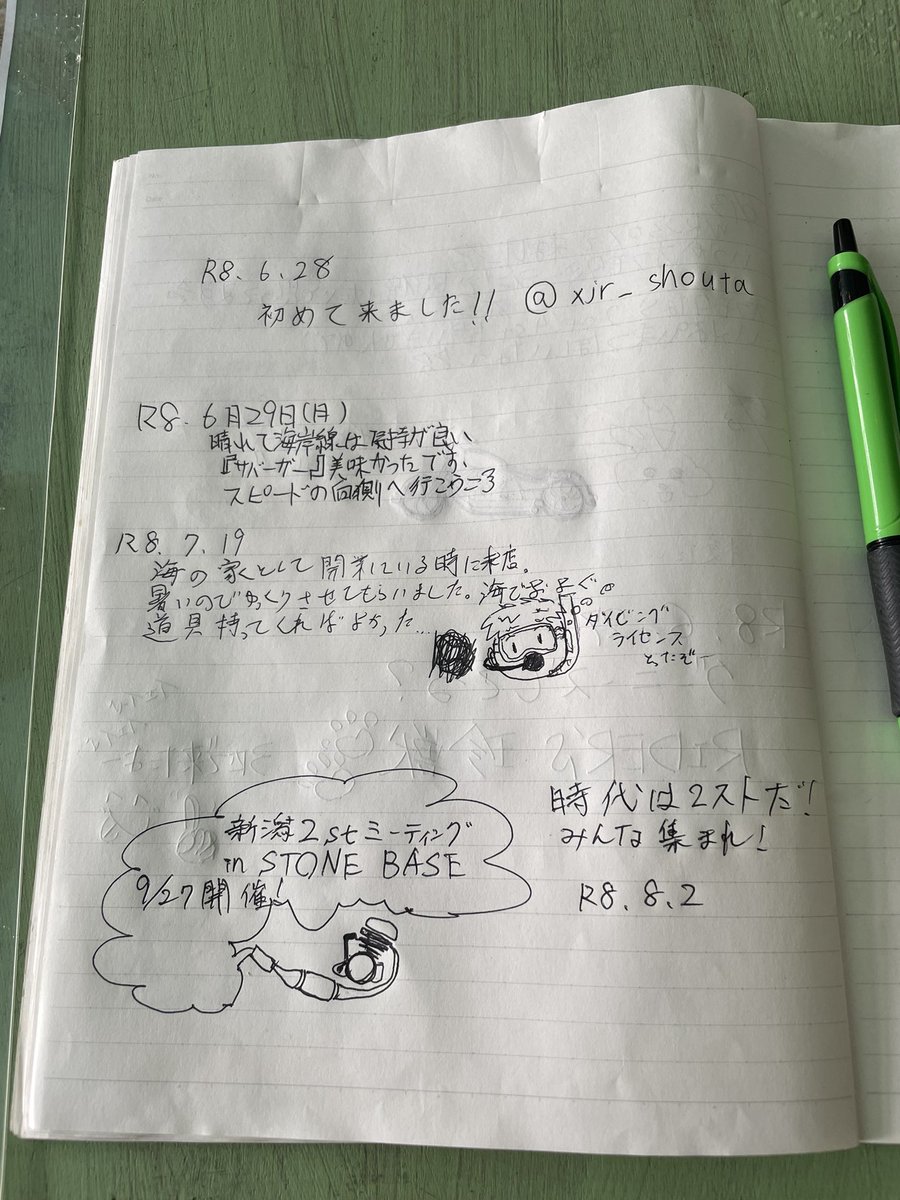 R8.6.28
初めて来ました!! @xjr_shouta
R8.6月29日(月)
晴れて海岸線は気持が良い
『サバーガー』美味かったです、
スピードの向側へ行こうご3
R8.7.19
海の家として開業している時に来店。
暑いのでゆっくりさせてもらいました。海でおよぐ
道具持ってくればよかった…
ダイビング
ライセンス
とったぞー
新潟2stミーティング
in STONE BASE
9/27開催!
時代は2ストだ!
みんな集まれ!
R8.8.2